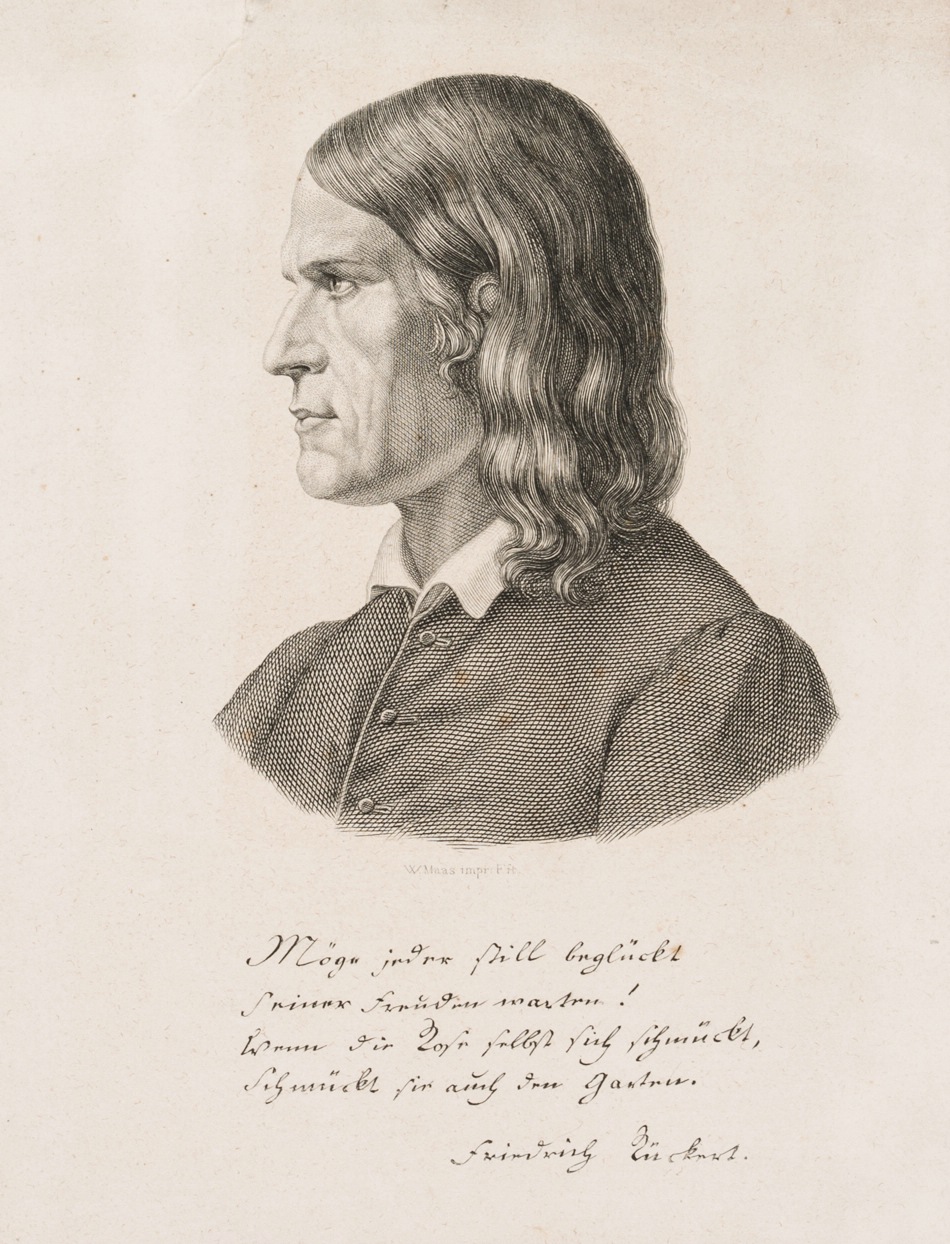 W. Maas impr. Fft.
Möge jeder still beglückt
Seiner Freuden warten!
Wenn die Rose selbst sich schmückt,
Schmückt sie auch den Garten.
Friedrich Rückert.